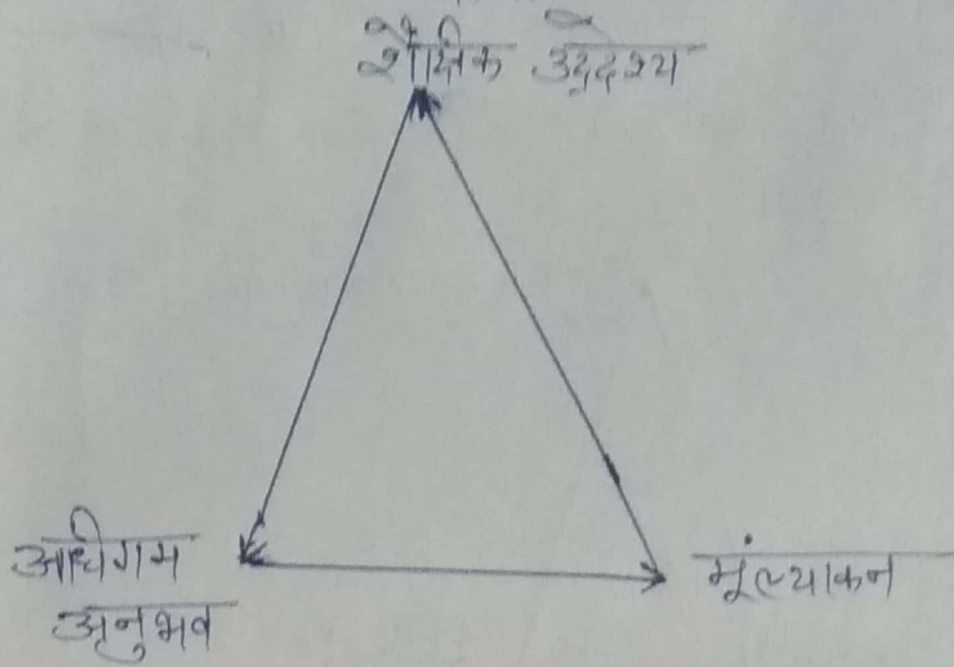 शैक्षिक उद्देश्य
अधिगम
अनुभव
मूंल्याकन